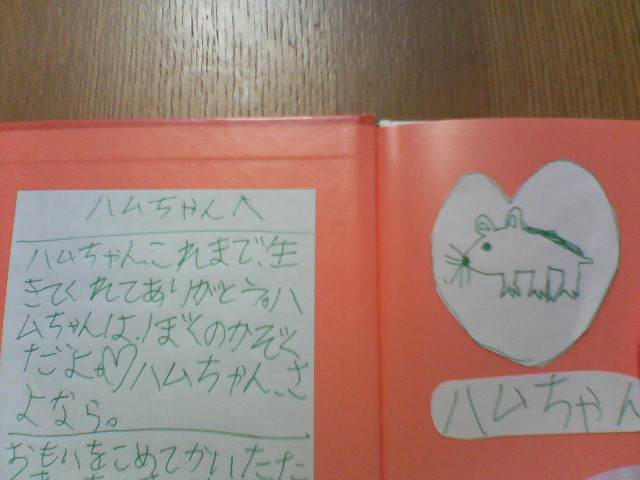 ハムちゃんへ
ハムちゃん、これまで、生
きてくれてありがとう。ハ
ムちゃんは、ぼくのかぞく
だよ♡ハムちゃん、さ
よなら。
おもいをこめてかいたた
ハムちゃん